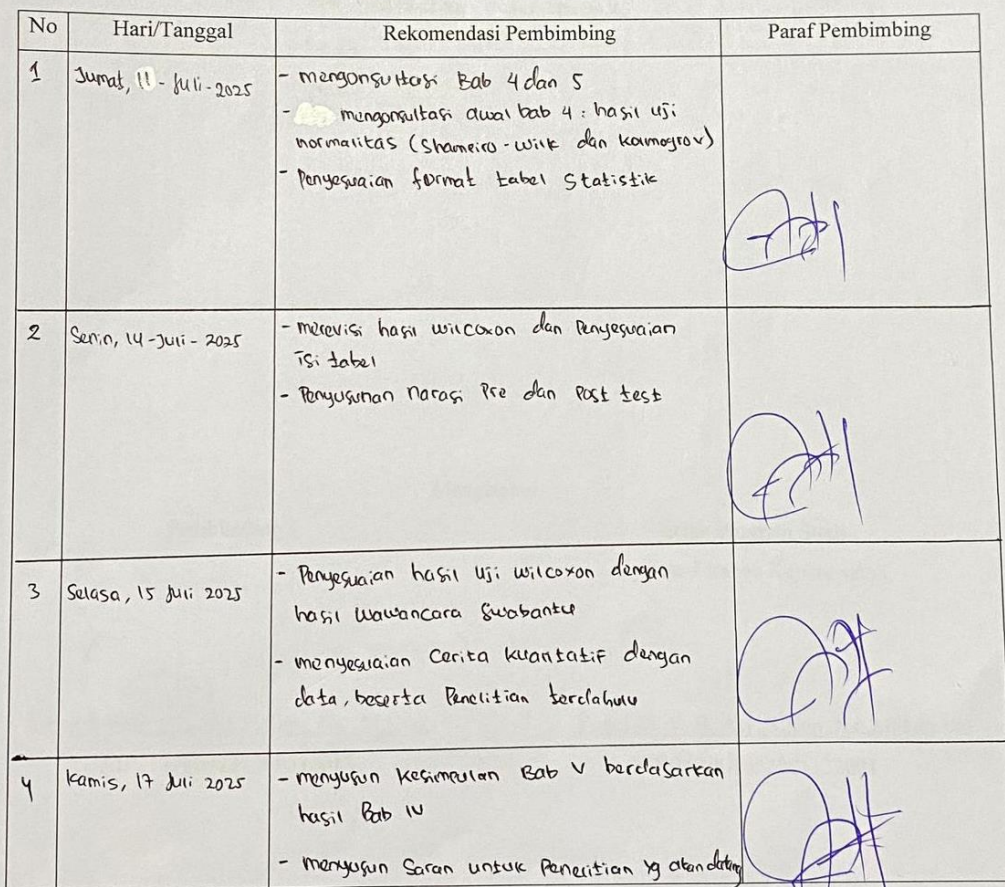 No Hari/Tanggal Rekomendasi Pembimbing Paraf Pembimbing
1 Jumat, 11 - Juli - 2025 - mengonsultasi Bab 4 dan 5
- mengonsultasi awal bab 4 : hasil uji
normalitas (Shameiro - wilk dan kolmogrov)
- Penyesuaian format tabel Statistik
2 Senin, 14 - Juli - 2025 - merevisi hasil wilcoxon dan Penyesuaian
isi tabel
- Penyusunan narasi Pre dan Post test
3 Selasa, 15 Juli 2025 - Penyesuaian hasil uji wilcoxon dengan
hasil wawancara Swabantu
- menyesuaian Cerita kuantatif dengan
data, beserta Penelitian terdahulu
4 Kamis, 17 Juli 2025 - menyusun Kesimpulan Bab V berdasarkan
hasil Bab IV
- menyusun Saran untuk Penelitian yg akan datang